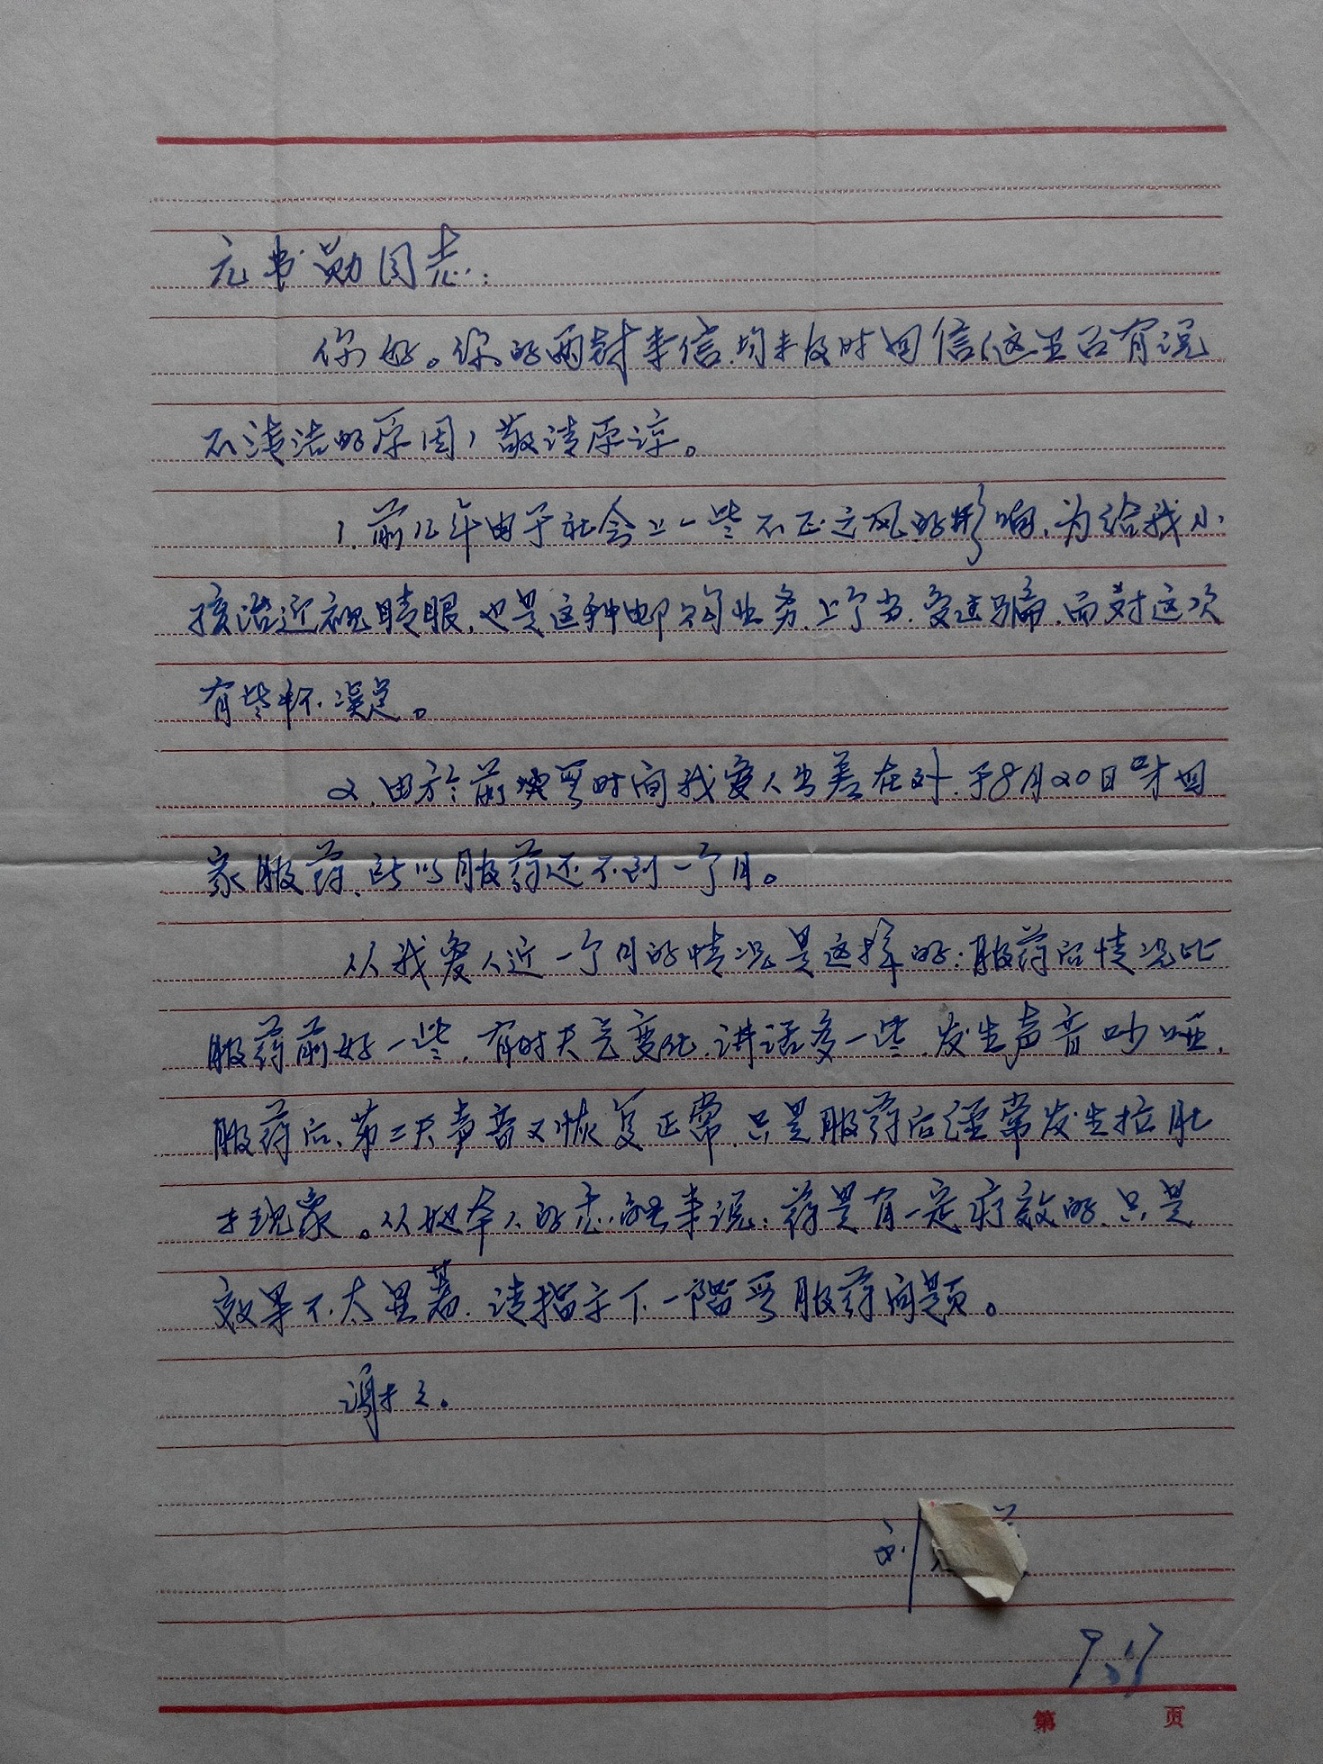 元书勋同志:
你好。你的两封来信,均未及时回信(这里面有说
不清洁的原因)敬请原谅。
1.前几年由于社会上一些不正之风的影响,为给我小
孩治近视眼睛,也是这种邮购业务,上个当,受过骗,而对这次
有些怀疑。
2.由於前段时间我爱人出差在外,于8月20日才回
家服药,所以服药还不到一个月。
从我爱人近一个月的情况是这样的:服药后情况比
服药前好一些,有时天气变化,讲话多一些,发生声音吵哑,
服药后,第二天声音又恢复正常,只是服药后经常发生拉肚
现象。从她本人的态度来说:药是有一定疗效的,只是
效果不太显著,请指示下一阶段服药问题。
谢之。
刘
第 页